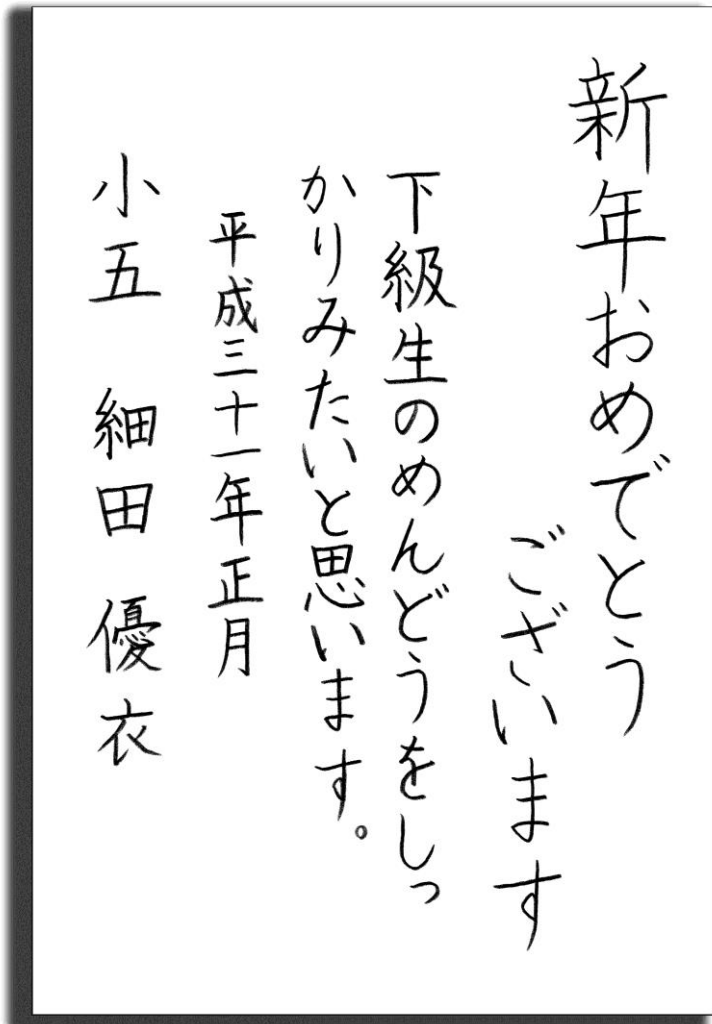 新年おめでとう
ございます
下級生のめんどうをしっ
かりみたいと思います。
平成三十一年正月
小五 細田 優衣